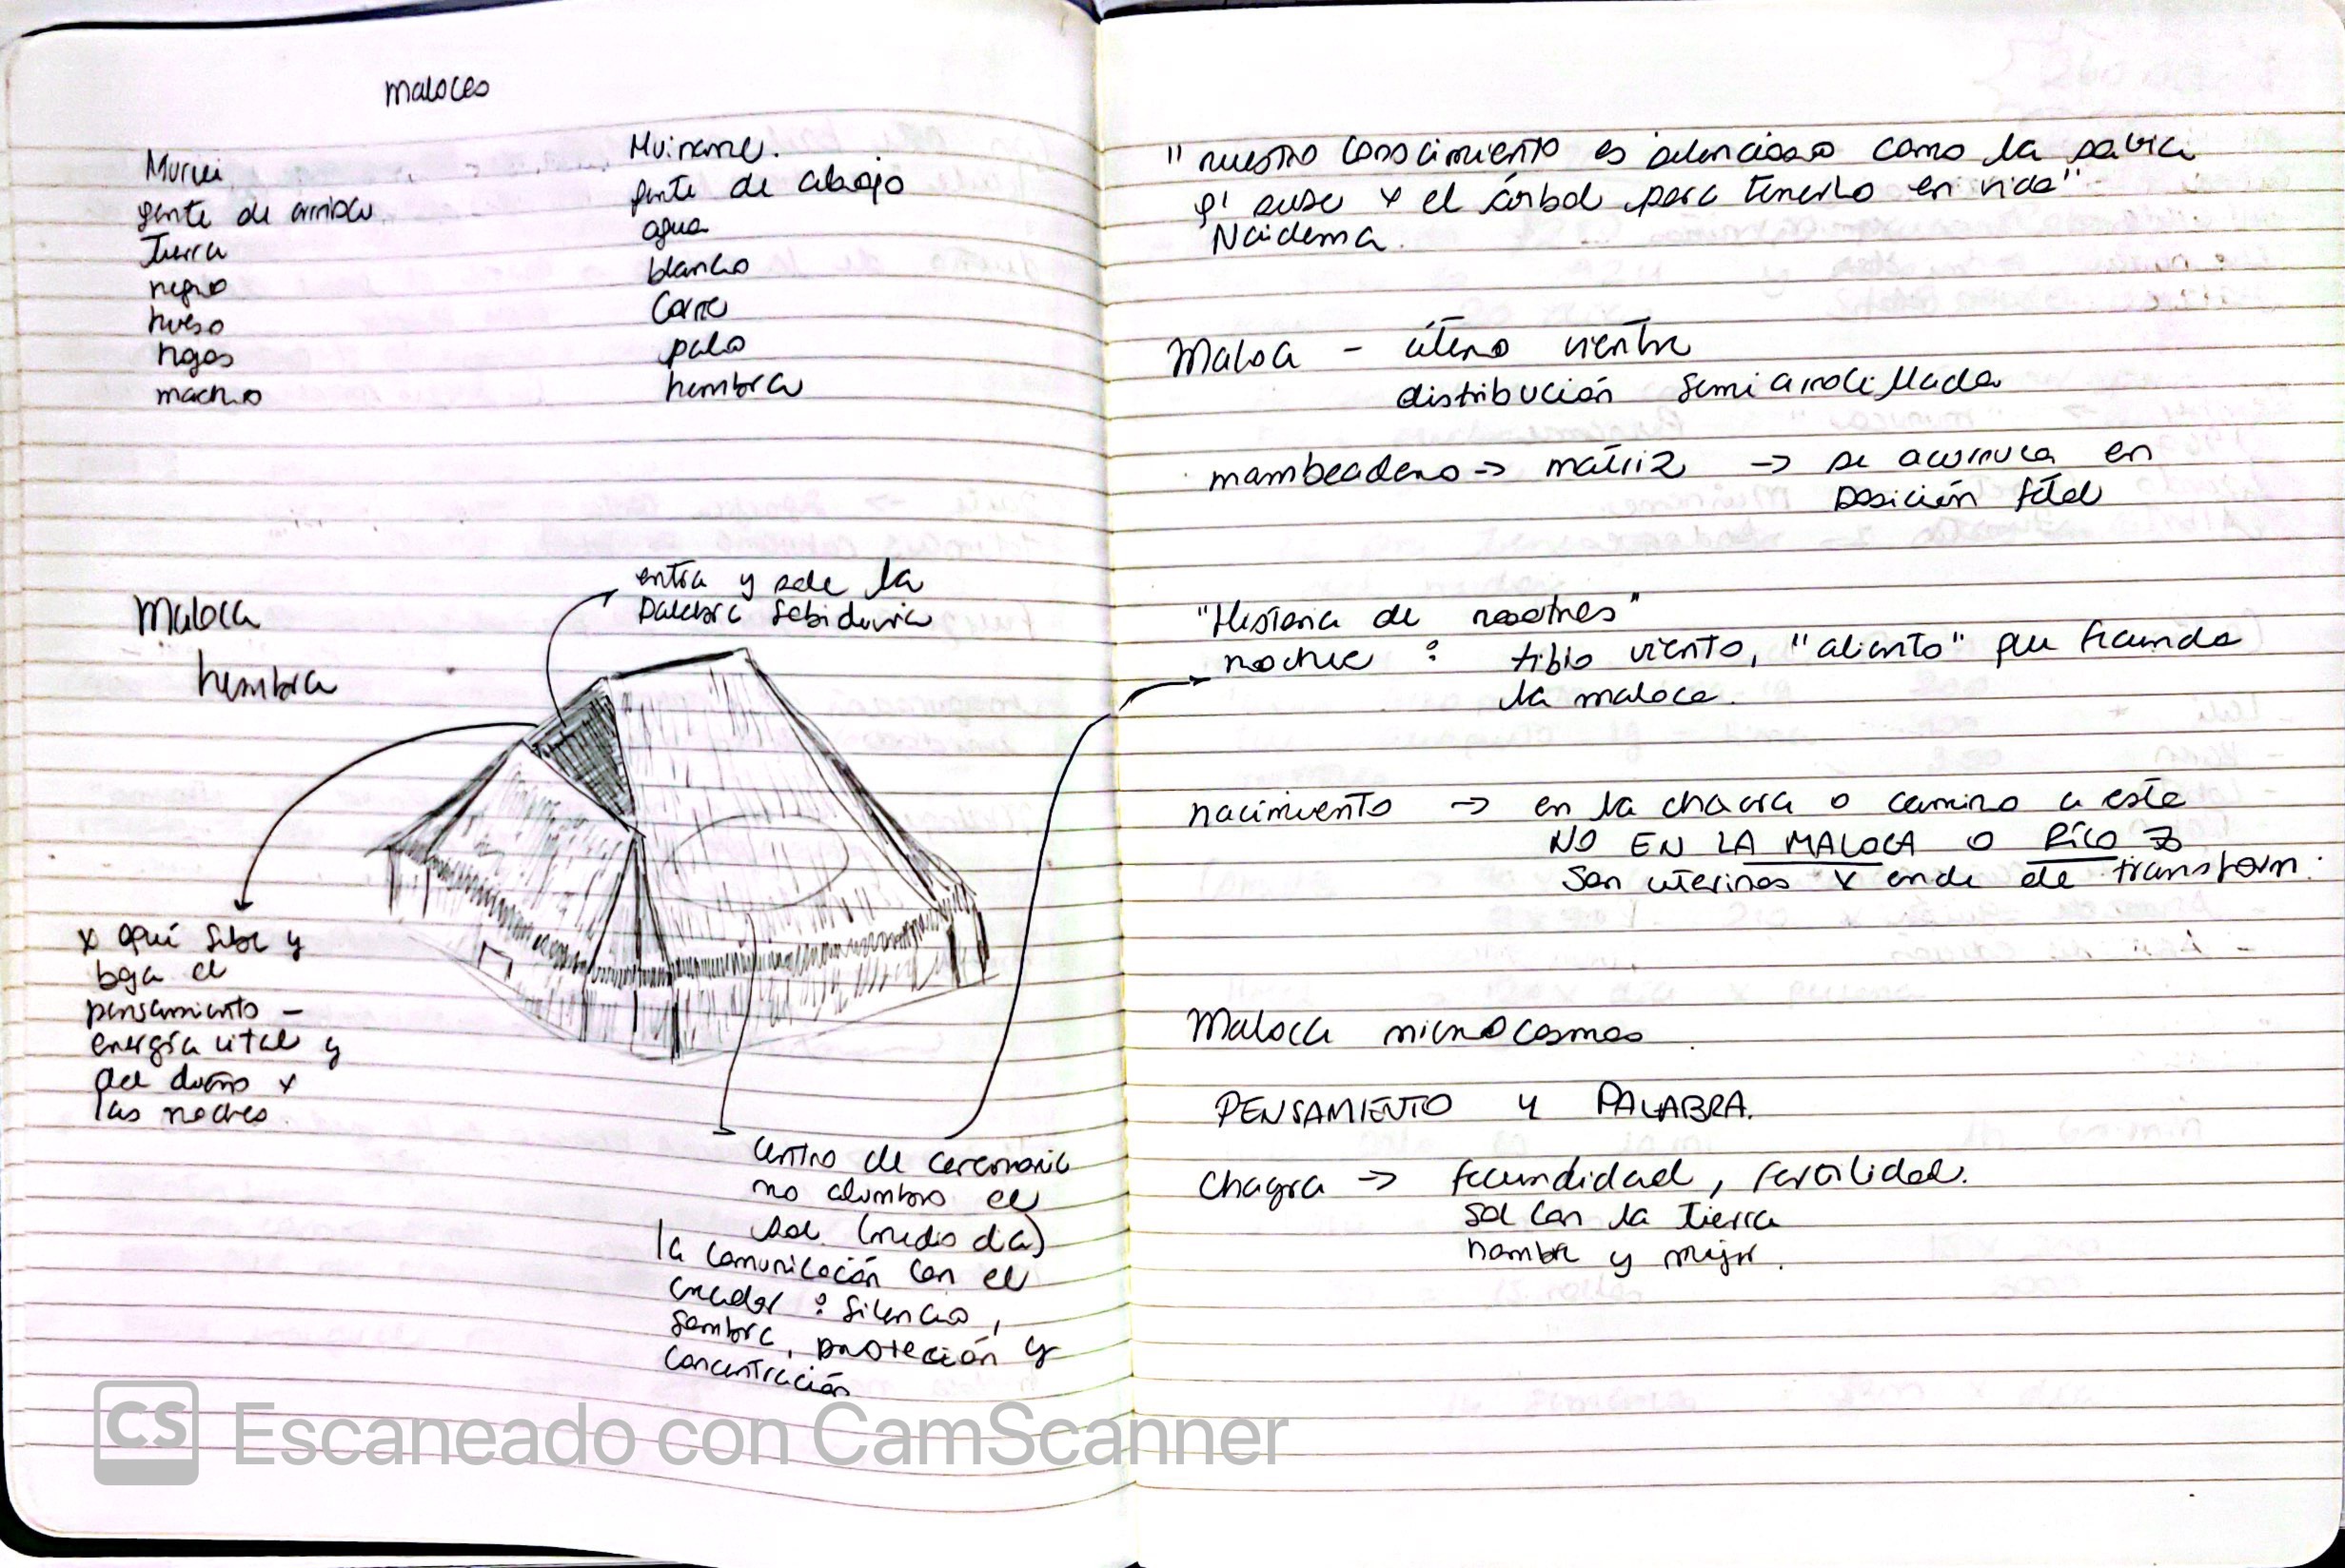 maloces
Muruí
gente de arriba
Tierra
negro
hueso
hojas
macho
Muiname.
gente de abajo
agua
blanco
Carne
palo
hembra
Maloca
hembra
entra y sale la
Palabra Sabiduría
x aquí sube y
baja el
pensamiento -
energía vital y
del dueño x
las noches.
Centro de ceremonia
no alumbra el
sol (medio día)
la comunicación con el
creador : Silencio,
sombra, protección y
Concentración
"nuestro conocimiento es silencioso como la savia
q' sube x el árbol para tenerlo en vida"
Naidema.
Maloca - útero vientre
distribución semiarodillada
mambeadero → matriz → se acurruca en
posición fetal
"Historia de nosotros"
noche : tibio viento, "aliento" que fecunda
la maloca.
nacimiento → en la chacra o camino a este
NO EN LA MALOCA O
Son uterinos x ende de transform.
Maloca microcosmos.
PENSAMIENTO Y PALABRA.
Chagra → fecundidad, fertilidad.
Sol con la tierra
hombre y mujer.
CS Escaneado con CamScanner